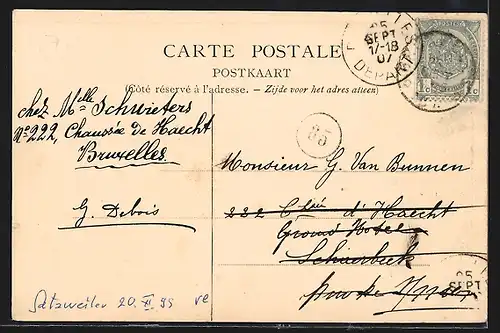 CARTE POSTALE
POSTKAART
(Côté réservé à l'adresse. - Zijde voor het adres alleen)
25
SEPT
17-18
07
DEPART
1c 1c
chez Mlle Schwieters
No 222, Chaussée de Haecht
Bruxelles
G. Debois
85
Monsieur G. Van Bunnen
222 Chée d'Haecht
Grand Hotel
Schaerbeek
25
SEPT
20. XI 99